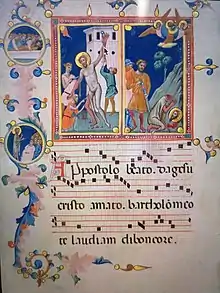 Appostolo beato. dagesu
cristo amato. bartholomeo
te laudiam diboncore.